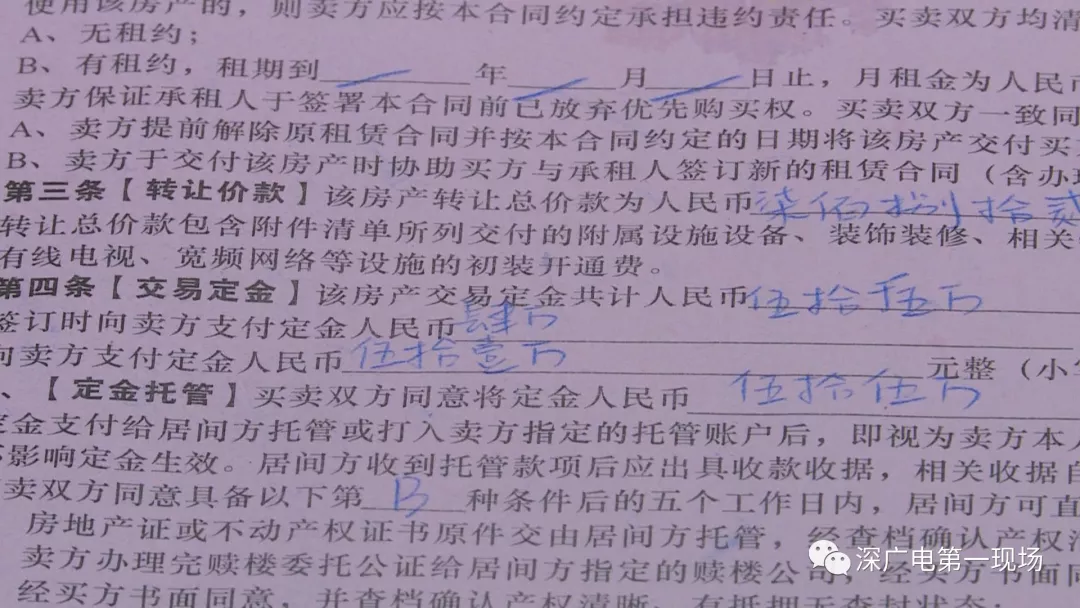 使用该房产的，则卖方应按本合同约定承担违约责任。买卖双方均清
A、无租约；
B、有租约，租期到 年 月 日止，月租金为人民币
卖方保证承租人于签署本合同前已放弃优先购买权。买卖双方一致同
A、卖方提前解除原租赁合同并按本合同约定的日期将该房产交付买
B、卖方于交付该房产时协助买方与承租人签订新的租赁合同（含办理
第三条【转让价款】该房产转让总价款为人民币柒佰捌拾贰
转让总价款包含附件清单所列交付的附属设施设备、装饰装修、相关
有线电视、宽频网络等设施的初装开通费。
第四条【交易定金】该房产交易定金共计人民币伍拾伍万
签订时向卖方支付定金人民币肆万
向卖方支付定金人民币伍拾壹万 元整（小写
、【定金托管】买卖双方同意将定金人民币伍拾伍万
定金支付给居间方托管或打入卖方指定的托管账户后，即视为卖方本人
影响定金生效。居间方收到托管款项后应出具收款收据，相关收据自
卖双方同意具备以下第B种条件后的五个工作日内，居间方可直
房地产证或不动产权证书原件交由居间方托管，经查档确认产权清
卖方办理完赎楼委托公证给居间方指定的赎楼公司，经买方书面同
经买方书面同意，并查档确认产权清晰、有抵押无查封状态
深广电第一现场